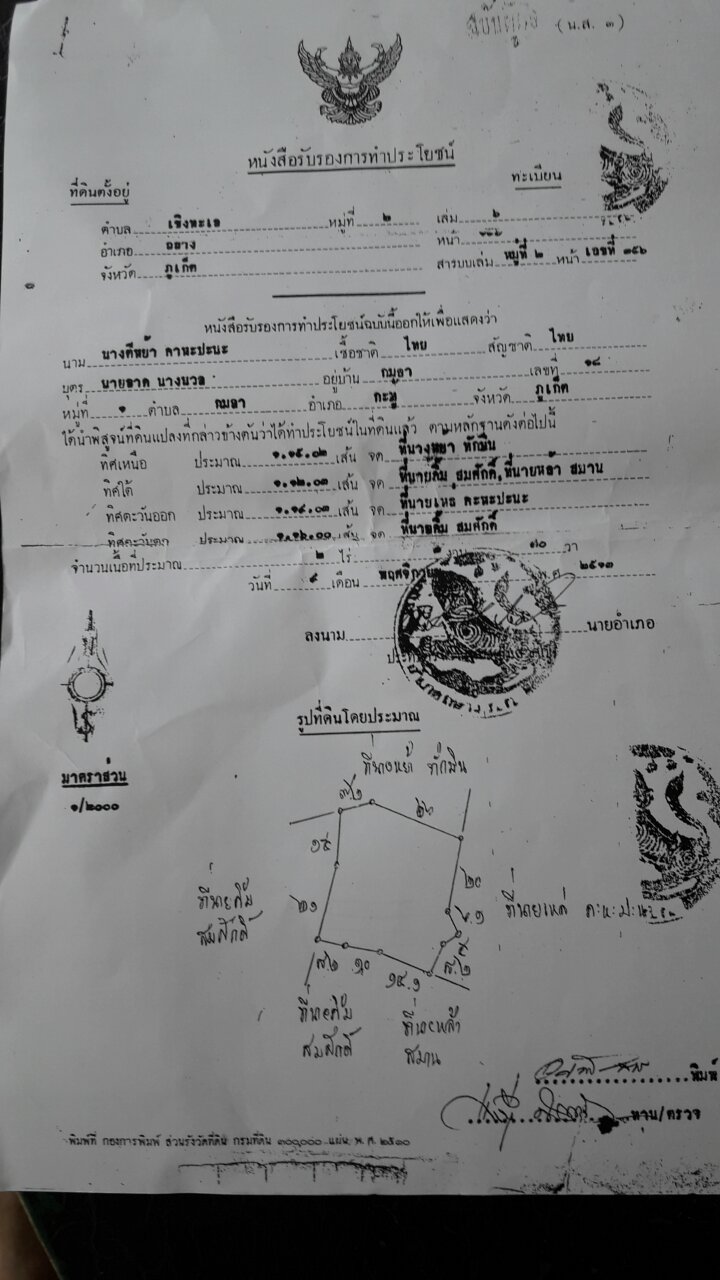 (น.ส. ๓)
หนังสือรับรองการทำประโยชน์
ที่ดินตั้งอยู่
ทะเบียน
ตำบล เชิงทะเล หมู่ที่ ๒ เล่ม ๖
อำเภอ ถลาง หน้า
จังหวัด ภูเก็ต สารบบเล่ม หมู่ที่ ๒ หน้า เลขที่ ๓๕๖
หนังสือรับรองการทำประโยชน์ฉบับนี้ออกให้เพื่อแสดงว่า
นาม นางตีหย้า คาหะปะนะ เชื้อชาติ ไทย สัญชาติ ไทย
บุตร นายลาด นางนวล อยู่บ้าน กมลา เลขที่ ๑๘
หมู่ที่ ๑ ตำบล กมลา อำเภอ กะทู้ จังหวัด ภูเก็ต
ได้นำพิสูจน์ที่ดินแปลงที่กล่าวข้างต้นว่าได้ทำประโยชน์ในที่ดินแล้ว ตามหลักฐานดังต่อไปนี้
ทิศเหนือ ประมาณ ๑.๑๕.๐๒ เส้น จด ที่นางหย้า ทักมิน
ทิศใต้ ประมาณ ๑.๑๒.๐๓ เส้น จด ที่นายลิ้ม สมศักดิ์, ที่นายหล้า สมาน
ทิศตะวันออก ประมาณ ๑.๑๔.๐๓ เส้น จด ที่นายเหล่ คะหะปะนะ
ทิศตะวันตก ประมาณ ๑.๑๖.๐๐ เส้น จด ที่นายลิ้ม สมศักดิ์
จำนวนเนื้อที่ประมาณ ๒ ไร่ งาน ๗๐ วา
วันที่ ๙ เดือน พฤศจิกายน พ.ศ. ๒๕๑๓
ลงนาม นายอำเภอ
รูปที่ดินโดยประมาณ
ที่นางหย้า ทักมิน
มาตราส่วน
๑/๒๐๐๐
๒๐
ที่นายลิ้ม
สมศักดิ์
ที่นายเหล่ คะหะปะนะ
๑๐
ที่นายลิ้ม
สมศักดิ์
ที่นายหล้า
สมาน
พิมพ์
ทาน/ตรวจ
พิมพ์ที่ กองการพิมพ์ ส่วนรังวัดที่ดิน กรมที่ดิน ๓๐๐,๐๐๐ แผ่น พ.ศ. ๒๕๑๐